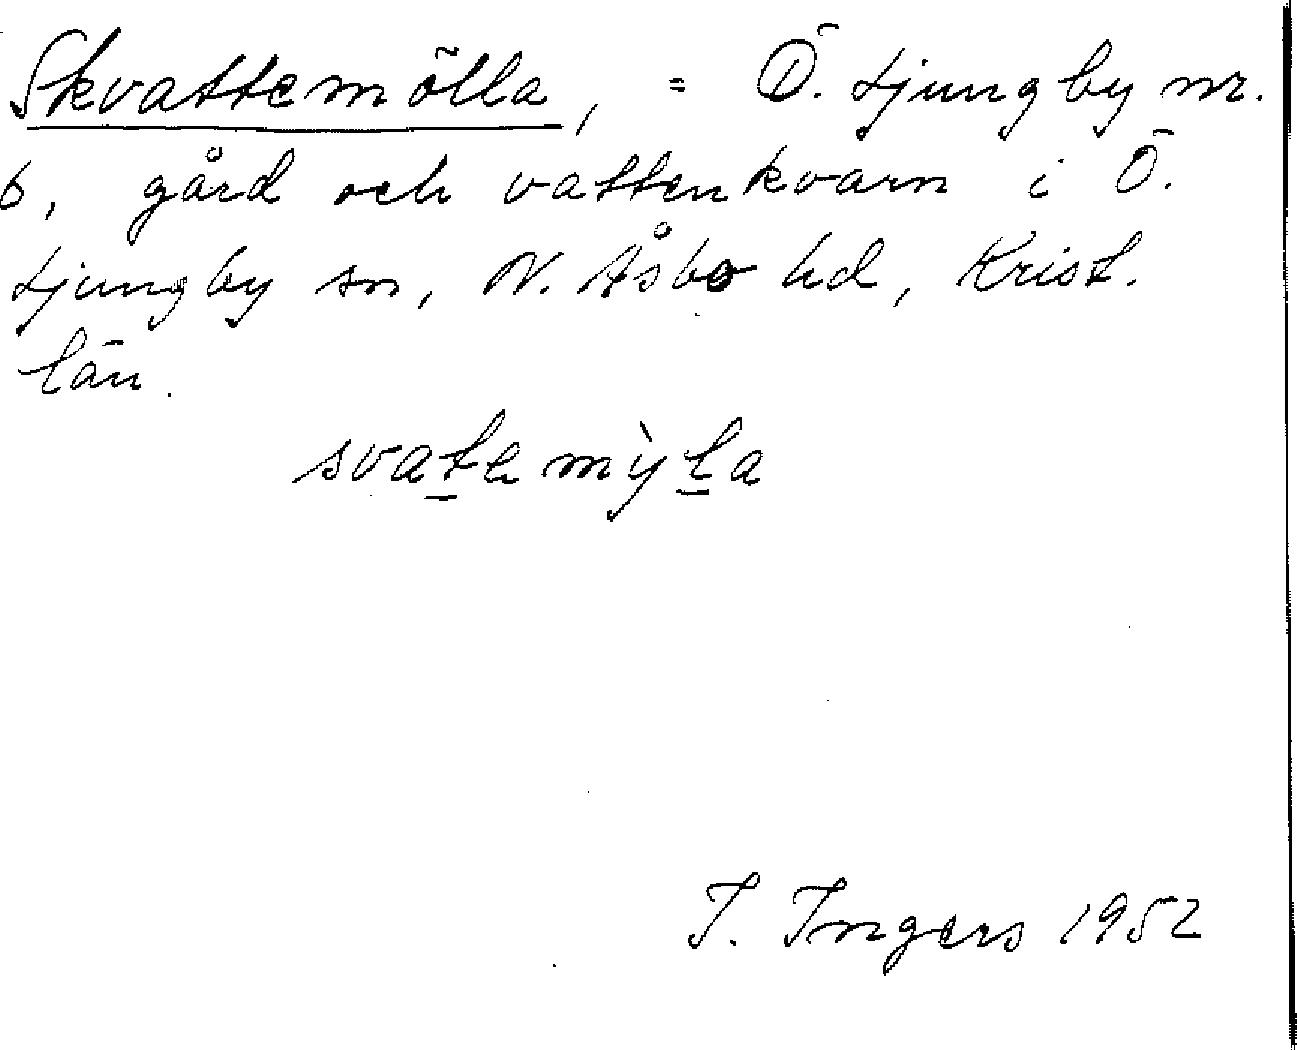 Skvattemölla, = Ö. Ljungby nr.
6, gård och vattenkvarn i Ö.
Ljungby sn, N. Åsbo hd, Krist.
län.
svatemỳla
I. Ingers 1952